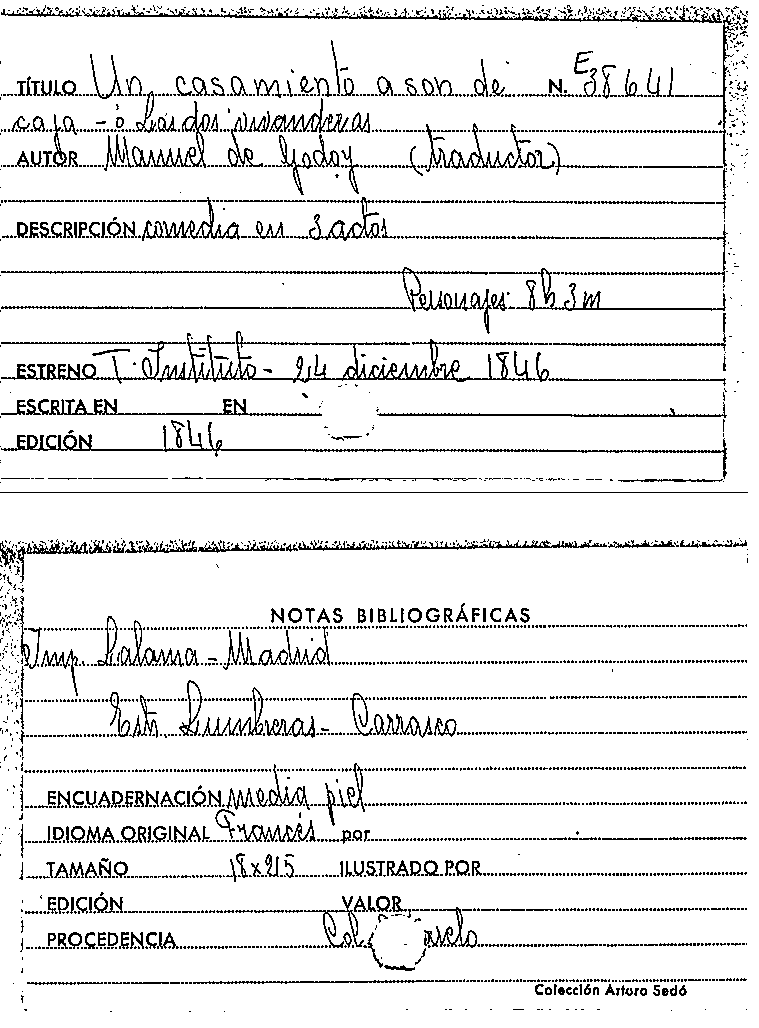 TÍTULO Un casamiento a son de N. E 38641
caja - ó Las dos vivanderas
AUTOR Manuel de Godoy (traductor)
DESCRIPCIÓN comedia en 3 actos
Personajes 8h 3m
ESTRENO T. Instituto - 24 diciembre 1846
ESCRITA EN EN
EDICIÓN 1846
NOTAS BIBLIOGRÁFICAS
Imp. Lalama - Madrid
Estr. Lumbreras - Carrasco
ENCUADERNACIÓN media piel
IDIOMA ORIGINAL Francés por
TAMAÑO 18x215 ILUSTRADO POR
EDICIÓN VALOR
PROCEDENCIA Col.
Colección Arturo Sedó